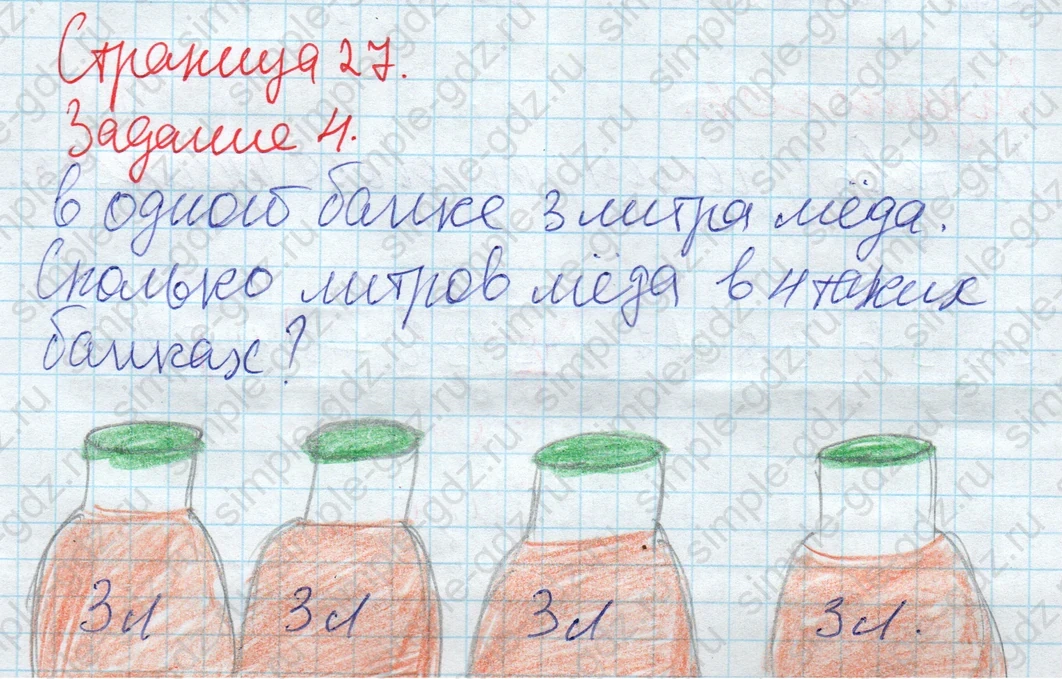 Страница 27.
Задание 4.
В одной банке 3 литра мёда.
Сколько литров мёда в 4 таких
банках?
3 л 3 л 3 л 3 л.
simple-gdz.ru